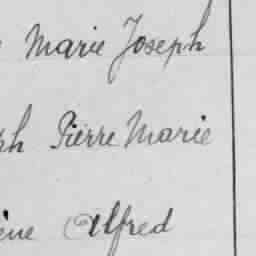 Marie Joseph
ph Pierre Marie
ène Alfred